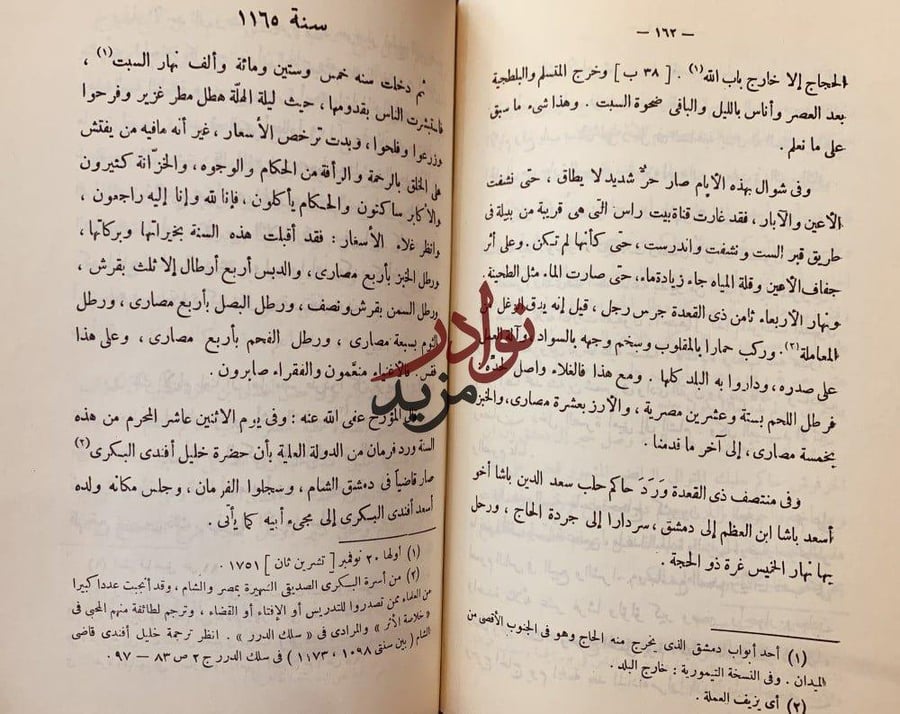 — ١٦٢ —
الحجاج إلا خارج باب الله (١) . [ ٣٨ ب ] وخرج المتسلم والبلطجية
بعد العصر وأناس بالليل والباقى ضحوة السبت . وهذا شىء ما سبق
على ما نعلم .
وفى شوال بهذه الأيام صار حرٌّ شديد لا يطاق ، حتى نشفت
الأعين والآبار ، فقد غارت قناة بيت راس التى هى قريبة من بيلة فى
طريق قبر الست ونشفت واندرست ، حتى كأنها لم تكن . وعلى أثر
جفاف الأعين وقلة المياه جاء زيادة ماء، حتى صارت الماء مثل الطحينة.
ونهار الأربعاء ثامن ذى القعدة جرس رجل ، قيل إنه يدق الزغل من
المعاملة (٢). وركب حمارا بالمقلوب وسخم وجهه بالسواد وآلة العمل
على صدره ، وداروا به البلد كلها . ومع هذا فالغلاء واصل لحده :
فرطل اللحم بستة وعشرين مصرية ، والأرز بعشرة مصارى، والخبز
بخمسة مصارى ، إلى آخر ما قدمنا .
وفى منتصف ذى القعدة وَرَدَ حاكم حلب سعد الدين باشا أخو
أسعد باشا ابن العظم إلى دمشق ، سردارا إلى جردة الحاج ، ورحل
بها نهار الخميس غرة ذو الحجة .
(١) أحد أبواب دمشق الذى يخرج منه الحاج وهو فى الجنوب الأقصى من
الميدان . وفى النسخة التيمورية : خارج البلد .
(٢) أى يزيف العملة .
سنة ١١٦٥
ثم دخلت سنه خمس وستين ومائة وألف نهار السبت (١) ،
فاستبشرت الناس بقدومها ، حيث ليلة الهلّة هطل مطر غزير وفرحوا
وزرعوا وفلحوا ، وبدت ترخص الأسعار ، غير أنه مافيه من يفتش
على الخلق بالرحمة والرأفة من الحكام والوجوه ، والخزّانة كثيرون
والأكابر ساكتون والحكام يأكلون ، فإنا لله وإنا إليه راجعون ،
وانظر غلاء الأسعار : فقد أقبلت هذه السنة بخيراتها وبركاتها ،
ورطل الخبز بأربع مصارى ، والدبس أربع أرطال إلا ثلث بقرش ،
ورطل السمن بقرش ونصف ، ورطل البصل بأربع مصارى ، ورطل
الثوم بسبعة مصارى ، ورطل الفحم بأربع مصارى ، وعلى هذا
فقس . فالأغنياء منعَّمون والفقراء صابرون .
قال المؤرخ عفى الله عنه : وفى يوم الاثنين عاشر المحرم من هذه
السنة ورد فرمان من الدولة العلية بأن حضرة خليل أفندى البكرى (٢)
صار قاضياً فى دمشق الشام ، وسجلوا الفرمان ، وجلس مكانه ولده
أسعد أفندى البكرى إلى مجىء أبيه كما يأتى .
(١) أولها ٢٠ نوفمبر [ تشرين ثان ] ١٧٥١ .
(٢) من أسرة البكرى الصديقى الشهيرة بمصر والشام ، وقد أنجبت عددا كبيرا
من العلماء ممن تصدروا للتدريس أو الإفتاء أو القضاء ، وترجم لطائفة منهم المحبى فى
« خلاصة الأثر » والمرادى فى « سلك الدرر » . انظر ترجمة خليل أفندى قاضى
الشام ( بين سنتى ١٠٩٨ ، ١١٧٣ ) فى سلك الدرر ج ٢ ص ٨٣ — ٩٧ .
نوادر
مزيد